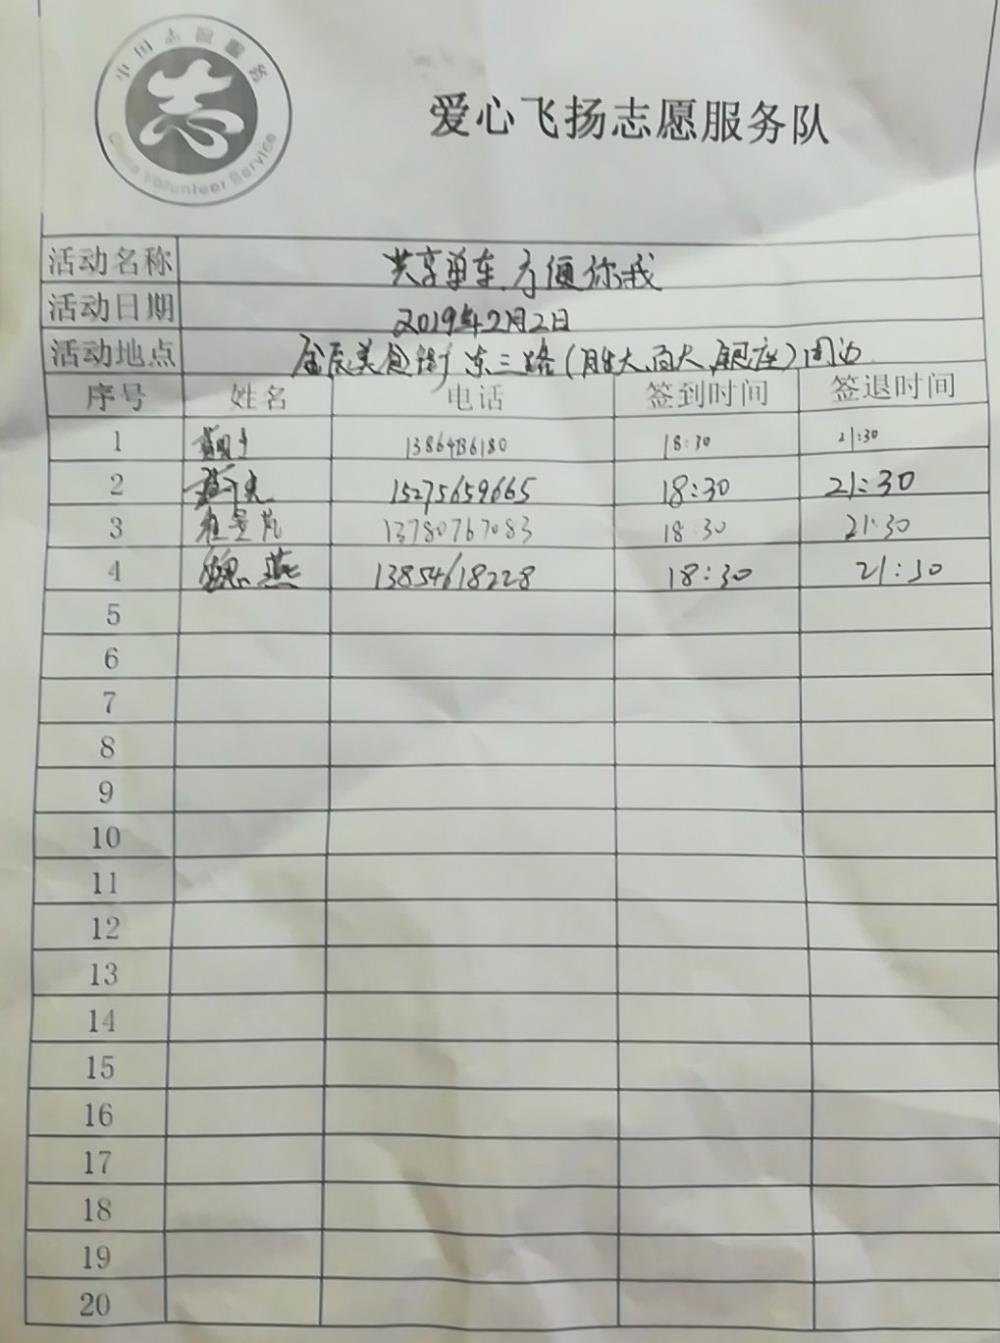 中国志愿服务
China Volunteer Service
爱心飞扬志愿服务队
活动名称 共享单车、方便你我
活动日期 2019年2月2日
活动地点 金辰美食街 东三路(胜大、百大、银座)周边
序号 姓名 电话 签到时间 签退时间
1 13864136180 18:30 21:30
2 15275659665 18:30 21:30
3 13780767083 18:30 21:30
4 魏燕 13854618228 18:30 21:30
5
6
7
8
9
10
11
12
13
14
15
16
17
18
19
20